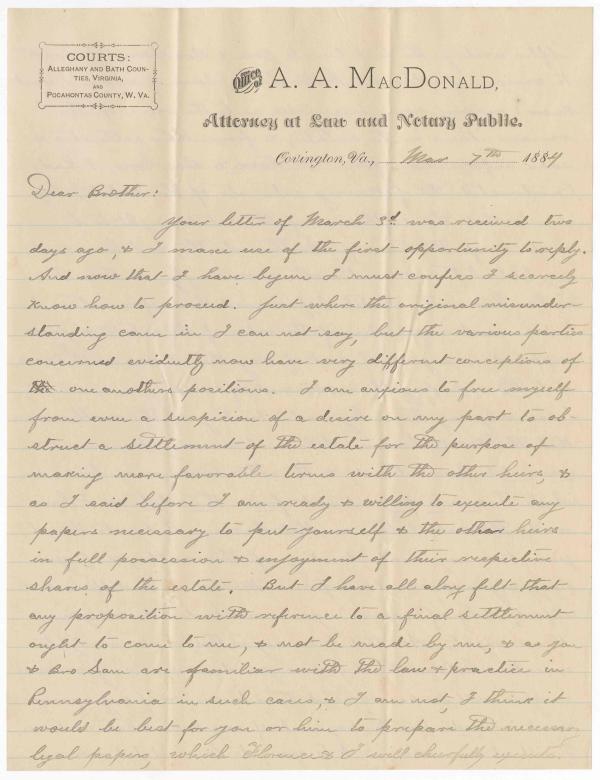 COURTS:
ALLEGHANY AND BATH COUN-
TIES, VIRGINIA,
AND
POCAHONTAS COUNTY, W. VA.
Office of A. A. MACDONALD,
Attorney at Law and Notary Public.
Covington, Va., Mar 7th 1884
Dear Brother:
Your letter of March 3d was received two
days ago, & I make use of the first opportunity to reply.
And now that I have begun I must confess I scarcely
know how to proceed. Just where the original misunder-
standing came in I can not say, but the various parties
concerned evidently now have very different conceptions of
one anothers positions. I am anxious to free myself
from even a suspicion of a desire on my part to ob-
struct a settlement of the estate for the purpose of
making more favorable terms with the other heirs, &
as I said before I am ready & willing to execute any
papers necessary to put yourself & the other heirs
in full possession & enjoyment of their respective
shares of the estate. But I have all along felt that
any proposition with reference to a final settlement
ought to come to me, & not be made by me, & as you
& Bro Sam are familiar with the law & practice in
Pennsylvania in such cases, & I am not, I think it
would be best for you or him to prepare the necessary
legal papers, which Florence & I will cheerfully execute.